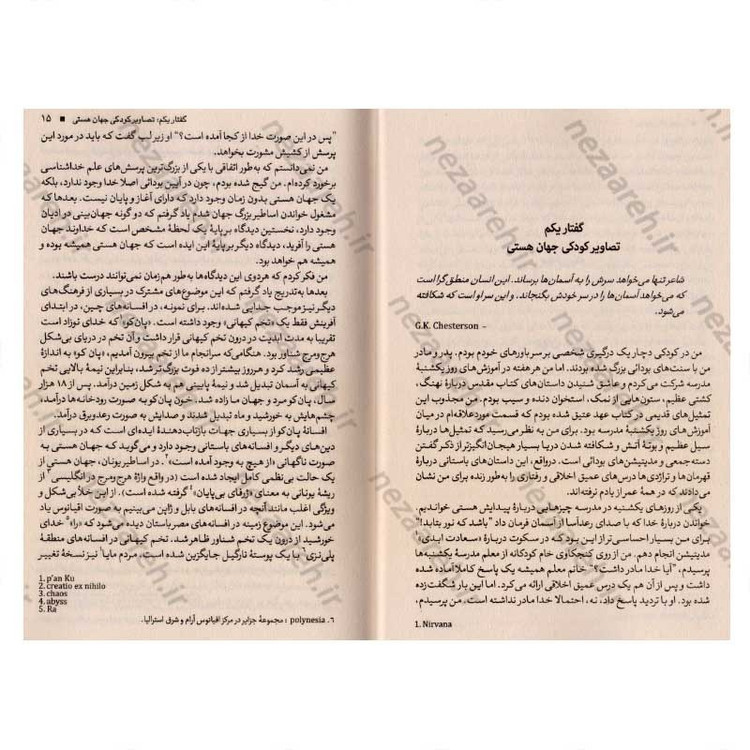 گفتار یکم
تصاویر کودکی جهان هستی
شاعر تنها می‌خواهد سرش را به آسمان‌ها برساند. این انسان منطق‌گرا است
که می‌خواهد آسمان‌ها را در سر خودش بگنجاند. و این سر او است که شکافته
می‌شود.
G.K. Chesterson –
من در کودکی دچار یک درگیری شخصی بر سر باورهای خودم بودم. پدر و مادر
من با سنت‌های بودائی بزرگ شده بودند. اما من هر هفته در آموزش‌های روز یکشنبهٔ
مدرسه شرکت می‌کردم و عاشق شنیدن داستان‌های کتاب مقدس دربارهٔ نهنگ،
کشتی عظیم، ستون‌هایی از نمک، استخوان دنده و سیب بودم. من مجذوب این
تمثیل‌های قدیمی در کتاب عهد عتیق شده بودم که قسمت مورد علاقه‌ام در میان
آموزش‌های روز یکشنبهٔ مدرسه بود. برای من به نظر می‌رسید که تمثیل‌ها دربارهٔ
سیل عظیم و بوتهٔ آتش و شکافته شدن دریا بسیار هیجان‌انگیزتر از ذکر گفتن
دسته جمعی و مدیتیشن‌های بودائی است. درواقع، این داستان‌های باستانی دربارهٔ
قهرمان‌ها و تراژدی‌ها درس‌های عمیق اخلاقی و رفتاری را به‌طور زنده برای من نشان
می‌دادند که در همهٔ عمر از یادم نرفته‌اند.
یکی از روزهای یکشنبه در مدرسه چیزهایی دربارهٔ پیدایش هستی خواندیم.
خواندن دربارهٔ خدا که با صدای رعدآسا از آسمان فرمان داد "باشد که نور بتابد!"
برای من بسیار احساسی‌تر از این بود که در سکوت دربارهٔ «سعادت ابدی»
مدیتیشن انجام دهم. من از روی کنجکاوی خام کودکانه از معلم مدرسهٔ یکشنبه‌ها
پرسیدم، "آیا خدا مادر داشت؟" خانم معلم همیشه یک پاسخ کاملا آماده شده
داشت و پس از آن هم یک درس عمیق اخلاقی ارائه می‌کرد. اما این بار شگفت‌زده
شده بود. او با تردید پاسخ داد، نه، احتمالا خدا مادر نداشته است. من پرسیدم،
1. Nirvana
گفتار یکم: تصاویر کودکی جهان هستی ■ ۱۵
"پس در این صورت خدا از کجا آمده است؟" او زیر لب گفت که باید در مورد این
پرسش از کشیش مشورت بخواهد.
من نمی‌دانستم که به‌طور اتفاقی با یکی از بزرگ‌ترین پرسش‌های علم خداشناسی
برخورد کرده‌ام. من گیج شده بودم، چون در آیین بودائی اصلا خدا وجود ندارد، بلکه
یک جهان هستی بدون زمان وجود دارد که دارای آغاز و پایان نیست. بعدها که
مشغول خواندن اساطیر بزرگ جهان شدم یاد گرفتم که دو گونه جهان‌بینی در ادیان
وجود دارد، نخستین دیدگاه بر پایهٔ یک لحظهٔ مشخص است که خداوند جهان
هستی را آفرید، دیدگاه دیگر بر پایهٔ این ایده است که جهان هستی همیشه بوده و
همیشه هم خواهد بود.
من فکر کردم که هر دوی این دیدگاه‌ها به‌طور هم‌زمان نمی‌توانند درست باشند.
بعدها به‌تدریج یاد گرفتم که این موضوع‌های مشترک در بسیاری از فرهنگ‌های
دیگر نیز موجب جدایی شده‌اند. برای نمونه، در افسانه‌های چین، در ابتدای
آفرینش فقط یک «تخم کیهانی» وجود داشته است. «پان‌کو»۱ که خدای نوزاد است
تقریبا به مدت ابدیت در درون تخم کیهانی قرار داشت و آن تخم در دریای بی‌شکل
هرج‌ومرج شناور بود. هنگامی‌که سرانجام ما از تخم بیرون آمدیم، «پان‌کو» به اندازهٔ
عظیمی رشد کرد و هر روز بیشتر از ده فوت بزرگ‌تر شد، بنابراین نیمهٔ بالایی تخم
کیهانی به آسمان تبدیل شد و نیمهٔ پایینی هم به شکل زمین درآمد. پس از ۱۸ هزار
سال، پان‌کو مرد و جهان ما زاده شد. خون پان‌کو به صورت رودخانه‌ها درآمد،
چشم‌هایش به خورشید و ماه تبدیل شدند و صدایش به صورت رعدوبرق درآمد.
افسانهٔ پان‌کو از بسیاری جهات بازتاب‌دهندهٔ ایده‌ای است که در بسیاری از
دین‌های دیگر و افسانه‌های باستانی وجود دارد و می‌گوید که جهان هستی به
صورت ناگهانی «از هیچ به وجود آمده است»۲. در اساطیر یونان، جهان هستی از
یک حالت بی‌نظمی کامل ایجاد شده است (در واقع واژهٔ هرج‌ومرج در انگلیسی۳ از
ریشهٔ یونانی به معنای «ژرفای بی‌پایان»۴ گرفته شده است). از این خلأ بی‌شکل و
ویژگی اغلب مانند آنچه در افسانه‌های بابل و ژاپن می‌بینیم به صورت اقیانوس یاد
می‌شود. این موضوع زمینه در افسانه‌های مصر باستان دیده می‌شود که «را»۵ خدای
خورشید از درون یک تخم شناور ظاهر شد. تخم کیهانی در افسانه‌های منطقهٔ
پلی‌نزی۶ با یک پوستهٔ نارگیل جایگزین شده است. مردم مایا نیز نسخهٔ تغییر
1. p'an Ku
2. creatio ex nihilo
3. chaos
4. abyss
5. Ra
۶. polynesia : مجموعهٔ جزایر در مرکز اقیانوس آرام و شرق استرالیا.
nezaareh.ir